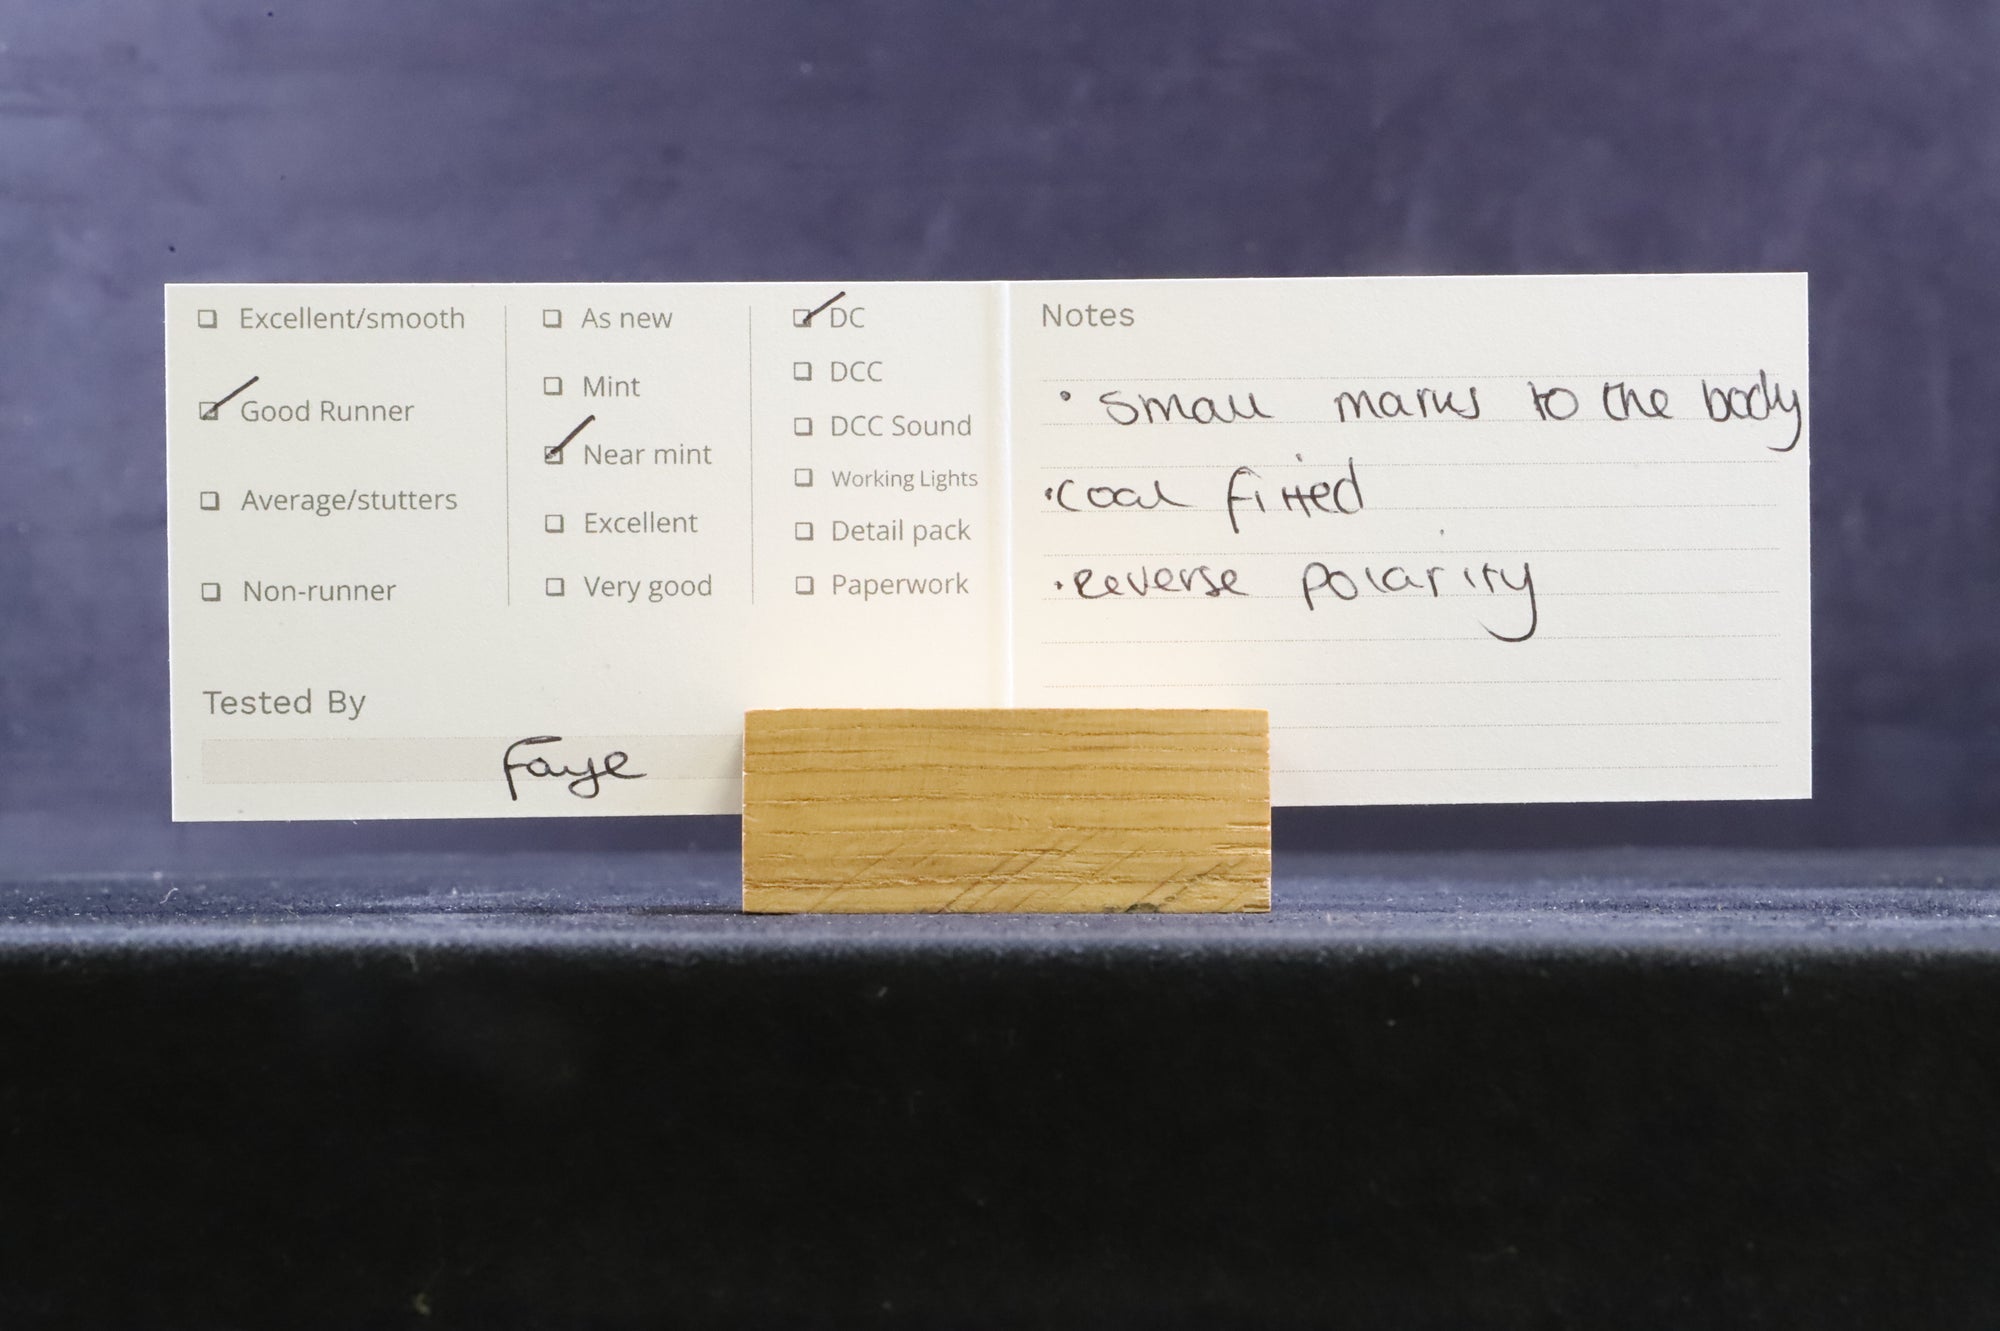 Excellent/smooth
Good Runner
Average/stutters
Non-runner
As new
Mint
Near mint
Excellent
Very good
DC
DCC
DCC Sound
Working Lights
Detail pack
Paperwork
Tested By
Faye
Notes
• Small marks to the body
• Coal fitted
• Reverse polarity